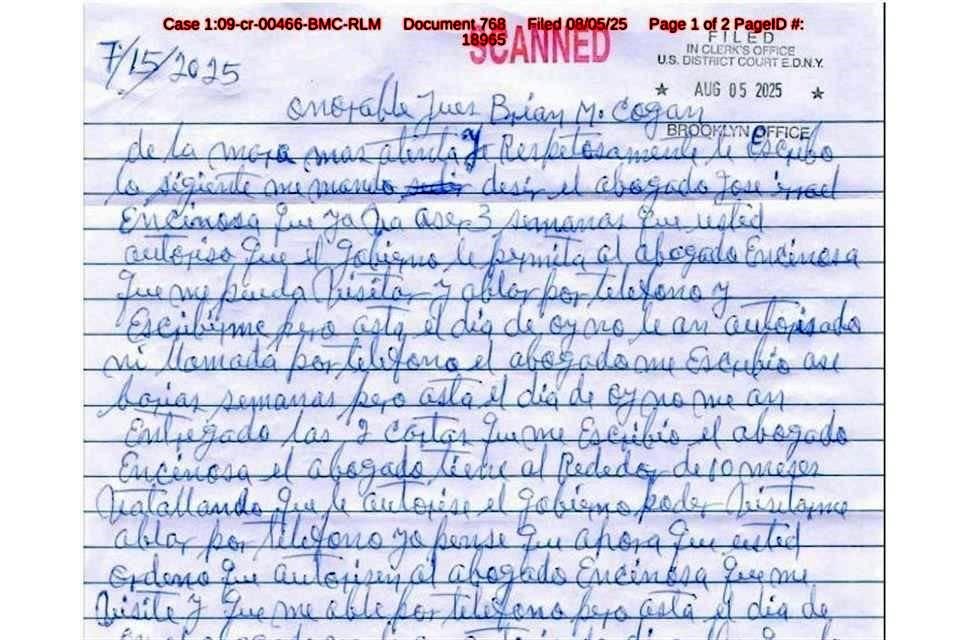 Case 1:09-cr-00466-BMC-RLM Document 768 Filed 08/05/25 Page 1 of 2 PageID #:
18965
SCANNED
FILED
IN CLERK'S OFFICE
U.S. DISTRICT COURT E.D.N.Y.
★ AUG 05 2025 ★
BROOKLYN OFFICE
7/15/2025
onorable Jues Brian M. Cogan
de la mara mas atenta y Respetosamente le Escribo
lo sigiente me mando desir el abogado Jose Irrael
Encinosa que ya ba aser 3 semanas que usted
autoriso que el gobierno le permita al abogado Encinosa
que me pueda Visitar y ablar por telefono y
Escribirme pero asta el dia de oy no le an autorisado
ni llamada por telefono el abogado me Escribio ase
barias semanas pero asta el dia de oy no me an
Entregado las 2 cartas que me Escribio el abogado
Encinosa el abogado tiene al Rededor de 10 meses
batallando que le autorise el gobierno poder Visitarme
ablar por telefono yo pense que ahora que usted
ordeno que autorisen al abogado Encinosa que me
Visite y que me able por telefono pero asta el dia de